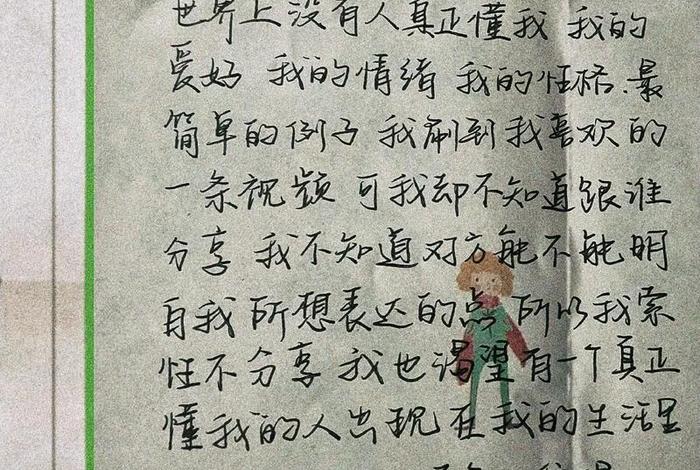 世界上没有人真正懂我 我的
爱好 我的情绪 我的性格.最
简单的例子 我刷到我喜欢的
一条视频 可我却不知道跟谁
分享 我不知道对方能不能明
白我所想表达的点 所以我索
性不分享 我也渴望有一个真正
懂我的人出现在我的生活里